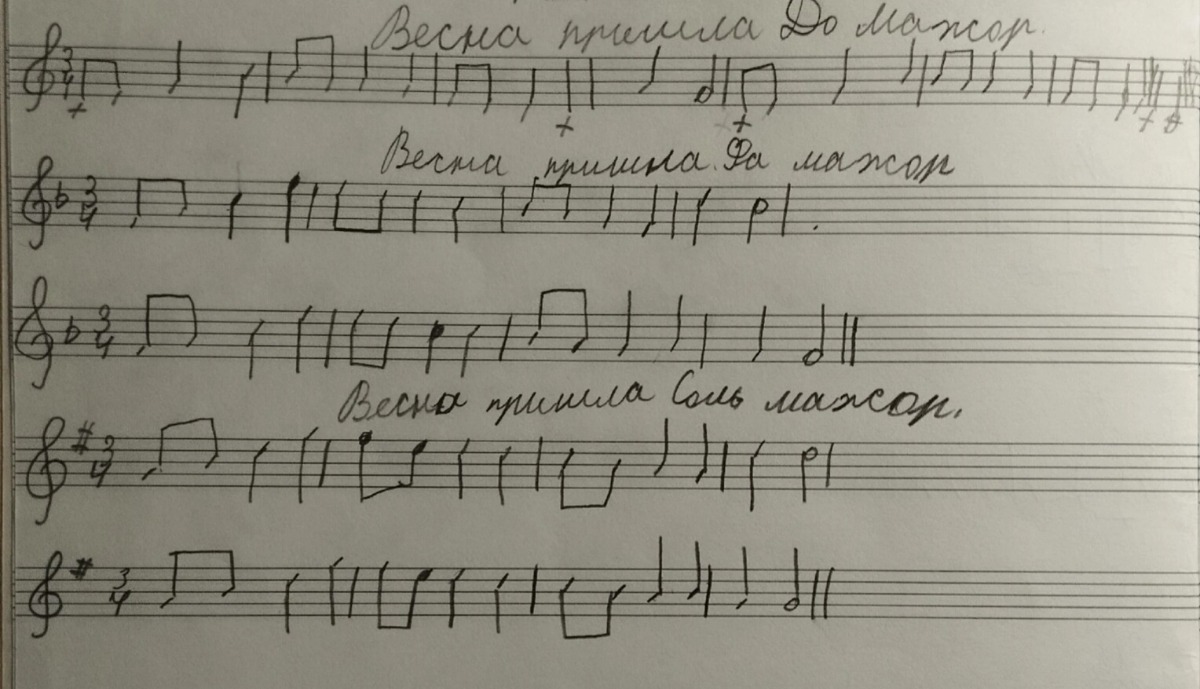 Весна пришла До мажор.
3
4
Весна пришла Фа мажор
3
4
3
4
Весна пришла Соль мажор.
3
4
3
4